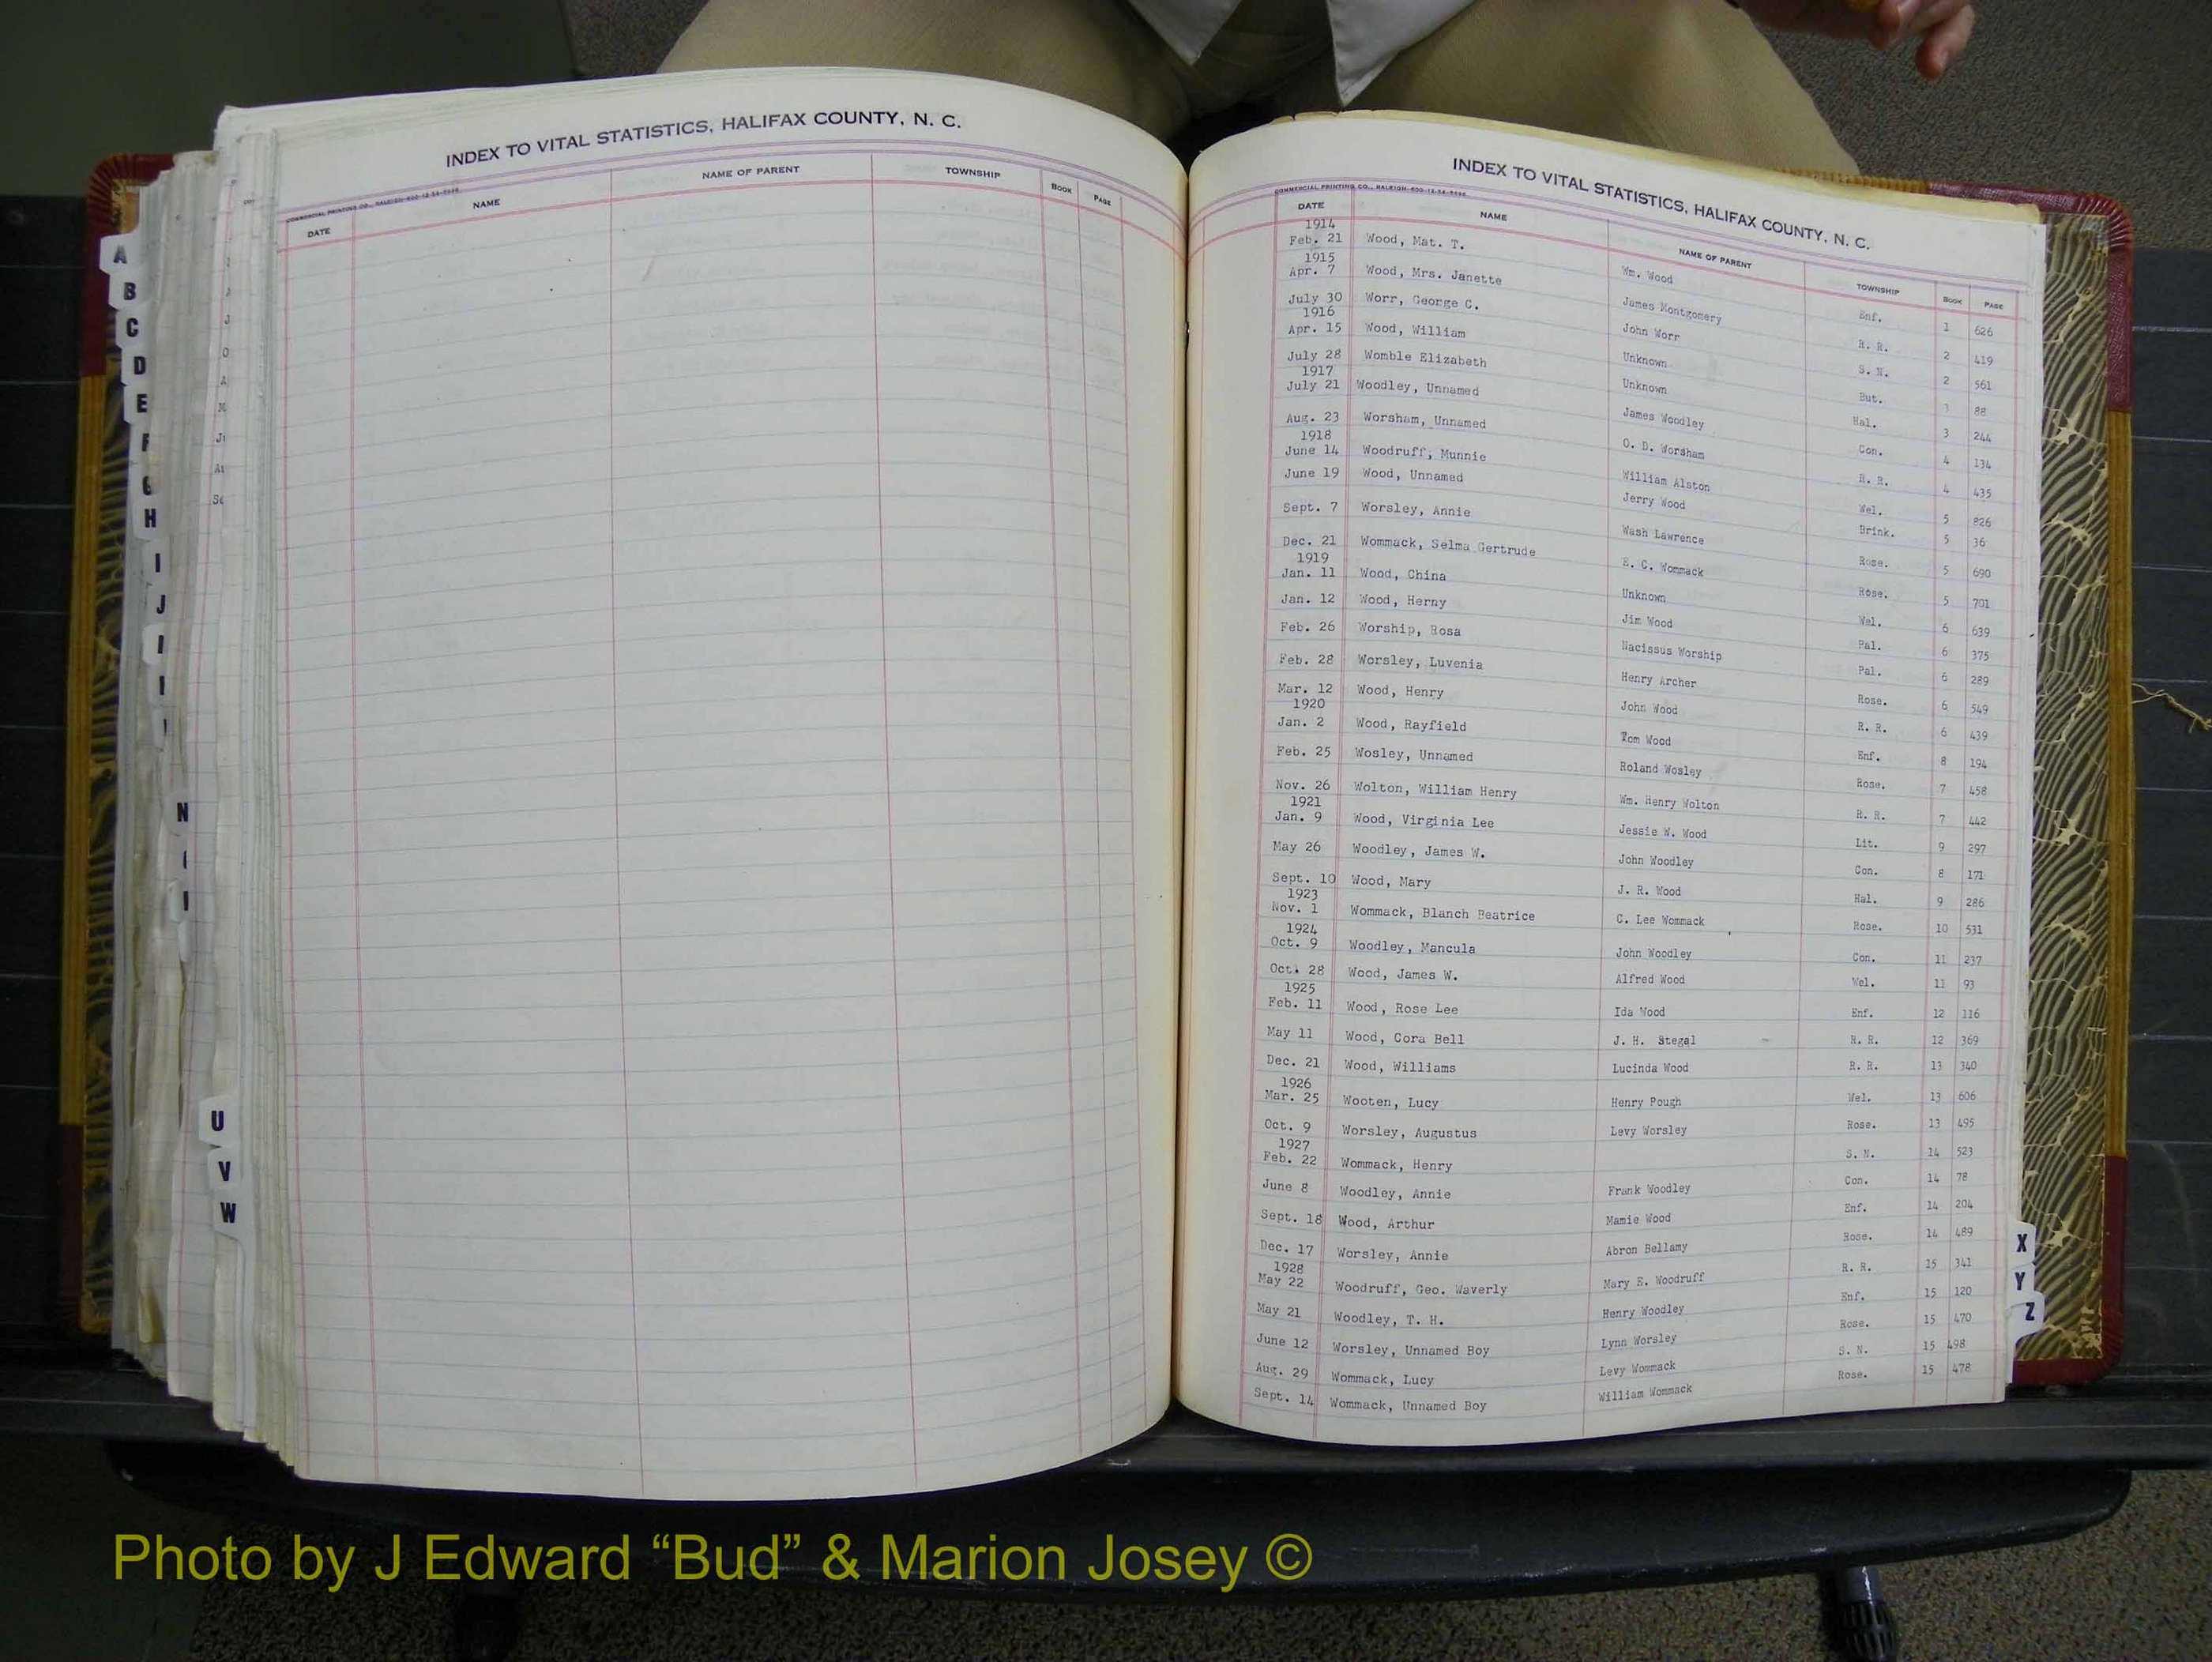 INDEX TO VITAL STATISTICS, HALIFAX COUNTY, N. C.
COMMERCIAL PRINTING CO., RALEIGH
DATE NAME NAME OF PARENT TOWNSHIP BOOK PAGE
A
B
C
D
E
H
I
J
N
U
V
W
INDEX TO VITAL STATISTICS, HALIFAX COUNTY, N. C.
COMMERCIAL PRINTING CO., RALEIGH
DATE NAME NAME OF PARENT TOWNSHIP BOOK PAGE
1914
Feb. 21 Wood, Mat. T. Wm. Wood Enf. 1 626
1915
Apr. 7 Wood, Mrs. Janette James Montgomery R. R. 2 419
July 30 Worr, George C. John Worr S. N. 2 561
1916
Apr. 15 Wood, William Unknown But. 88
July 28 Womble Elizabeth Unknown Hal. 3 244
1917
July 21 Woodley, Unnamed James Woodley Con. 4 134
Aug. 23 Worsham, Unnamed O. D. Worsham R. R. 4 435
1918
June 14 Woodruff, Munnie William Alston Wel. 5 826
June 19 Wood, Unnamed Jerry Wood Brink. 5 36
Sept. 7 Worsley, Annie Wash Lawrence Rose. 5 690
Dec. 21 Wommack, Selma Gertrude E. C. Wommack Rose. 5 701
1919
Jan. 11 Wood, China Unknown Wel. 6 639
Jan. 12 Wood, Herny Jim Wood Pal. 6 375
Feb. 26 Worship, Rosa Nacissus Worship Pal. 6 289
Feb. 28 Worsley, Luvenia Henry Archer Rose. 6 549
Mar. 12 Wood, Henry John Wood R. R. 6 439
1920
Jan. 2 Wood, Rayfield Tom Wood Enf. 8 194
Feb. 25 Wosley, Unnamed Roland Wosley Rose. 7 458
Nov. 26 Wolton, William Henry Wm. Henry Wolton R. R. 7 442
1921
Jan. 9 Wood, Virginia Lee Jessie W. Wood Lit. 9 297
May 26 Woodley, James W. John Woodley Con. 8 171
Sept. 10 Wood, Mary J. R. Wood Hal. 9 286
1923
Nov. 1 Wommack, Blanch Beatrice C. Lee Wommack Rose. 10 531
1924
Oct. 9 Woodley, Mancula John Woodley Con. 11 237
Oct. 28 Wood, James W. Alfred Wood Wel. 11 93
1925
Feb. 11 Wood, Rose Lee Ida Wood Enf. 12 116
May 11 Wood, Cora Bell J. H. Stegal R. R. 12 369
Dec. 21 Wood, Williams Lucinda Wood R. R. 13 340
1926
Mar. 25 Wooten, Lucy Henry Pough Wel. 13 606
Oct. 9 Worsley, Augustus Levy Worsley Rose. 13 495
1927
Feb. 22 Wommack, Henry S. N. 14 523
June 8 Woodley, Annie Frank Woodley Con. 14 78
Sept. 18 Wood, Arthur Mamie Wood Enf. 14 204
Dec. 17 Worsley, Annie Abron Bellamy Rose. 14 489
1928
May 22 Woodruff, Geo. Waverly Mary E. Woodruff R. R. 15 341
May 21 Woodley, T. H. Henry Woodley Enf. 15 120
June 12 Worsley, Unnamed Boy Lynn Worsley Rose. 15 470
Aug. 29 Wommack, Lucy Levy Wommack S. N. 15 498
Sept. 14 Wommack, Unnamed Boy William Wommack Rose. 15 478
X
Y
Z
Photo by J Edward “Bud” & Marion Josey ©